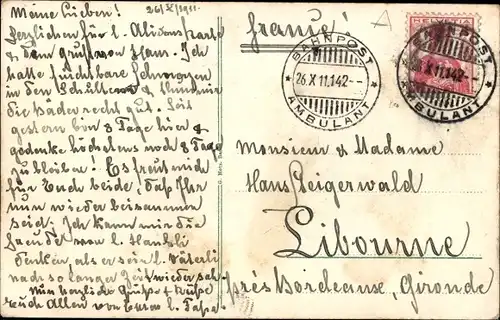 26/X/1911.
Meine Lieben!
Herzlichen für l. Ansichtskarte
& den Gruss von Hans. Ich
hatte furchtbare Schmerzen
in den Schultern & tun mir
die Bäder recht gut. Seit
gestern bin 8 Tage hier &
gedenke höchstens noch 8 Tage
zu bleiben! Es freut mich
für Euch beide, daß Ihr
nun wieder beisammen
seid. Ich kann mir die
Freude von l. Hansli
denken, als er sein l. Väterli
nach so langer Zeit wieder sah.
Mit herzliche Grüße & Küsse
Euch Allen von Eurem l. Papa.
France!
BAHNPOST
26 X 11.142--
AMBULANT
HELVETIA
BAHNPOST
26 X 11.142--
AMBULANT
Monsieur & Madame
Hans Steigerwald
Libourne
près Bordeaux, Gironde